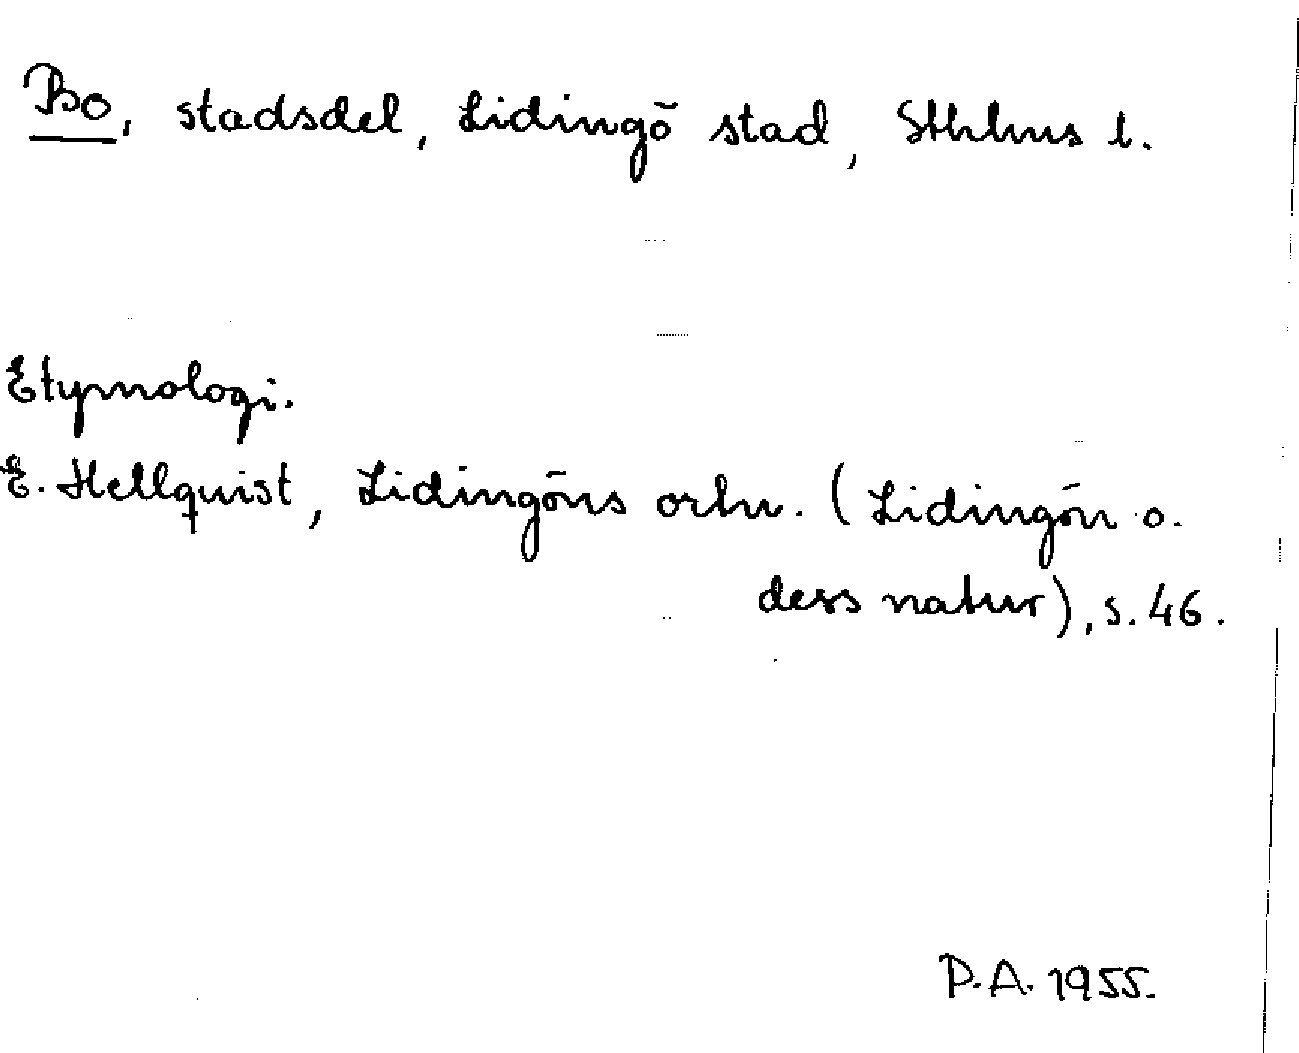 Bo, stadsdel, Lidingö stad, Sthlms l.
Etymologi.
E. Hellquist, Lidingöns ortn. (Lidingön o.
dess natur), s. 46.
P.A. 1955.